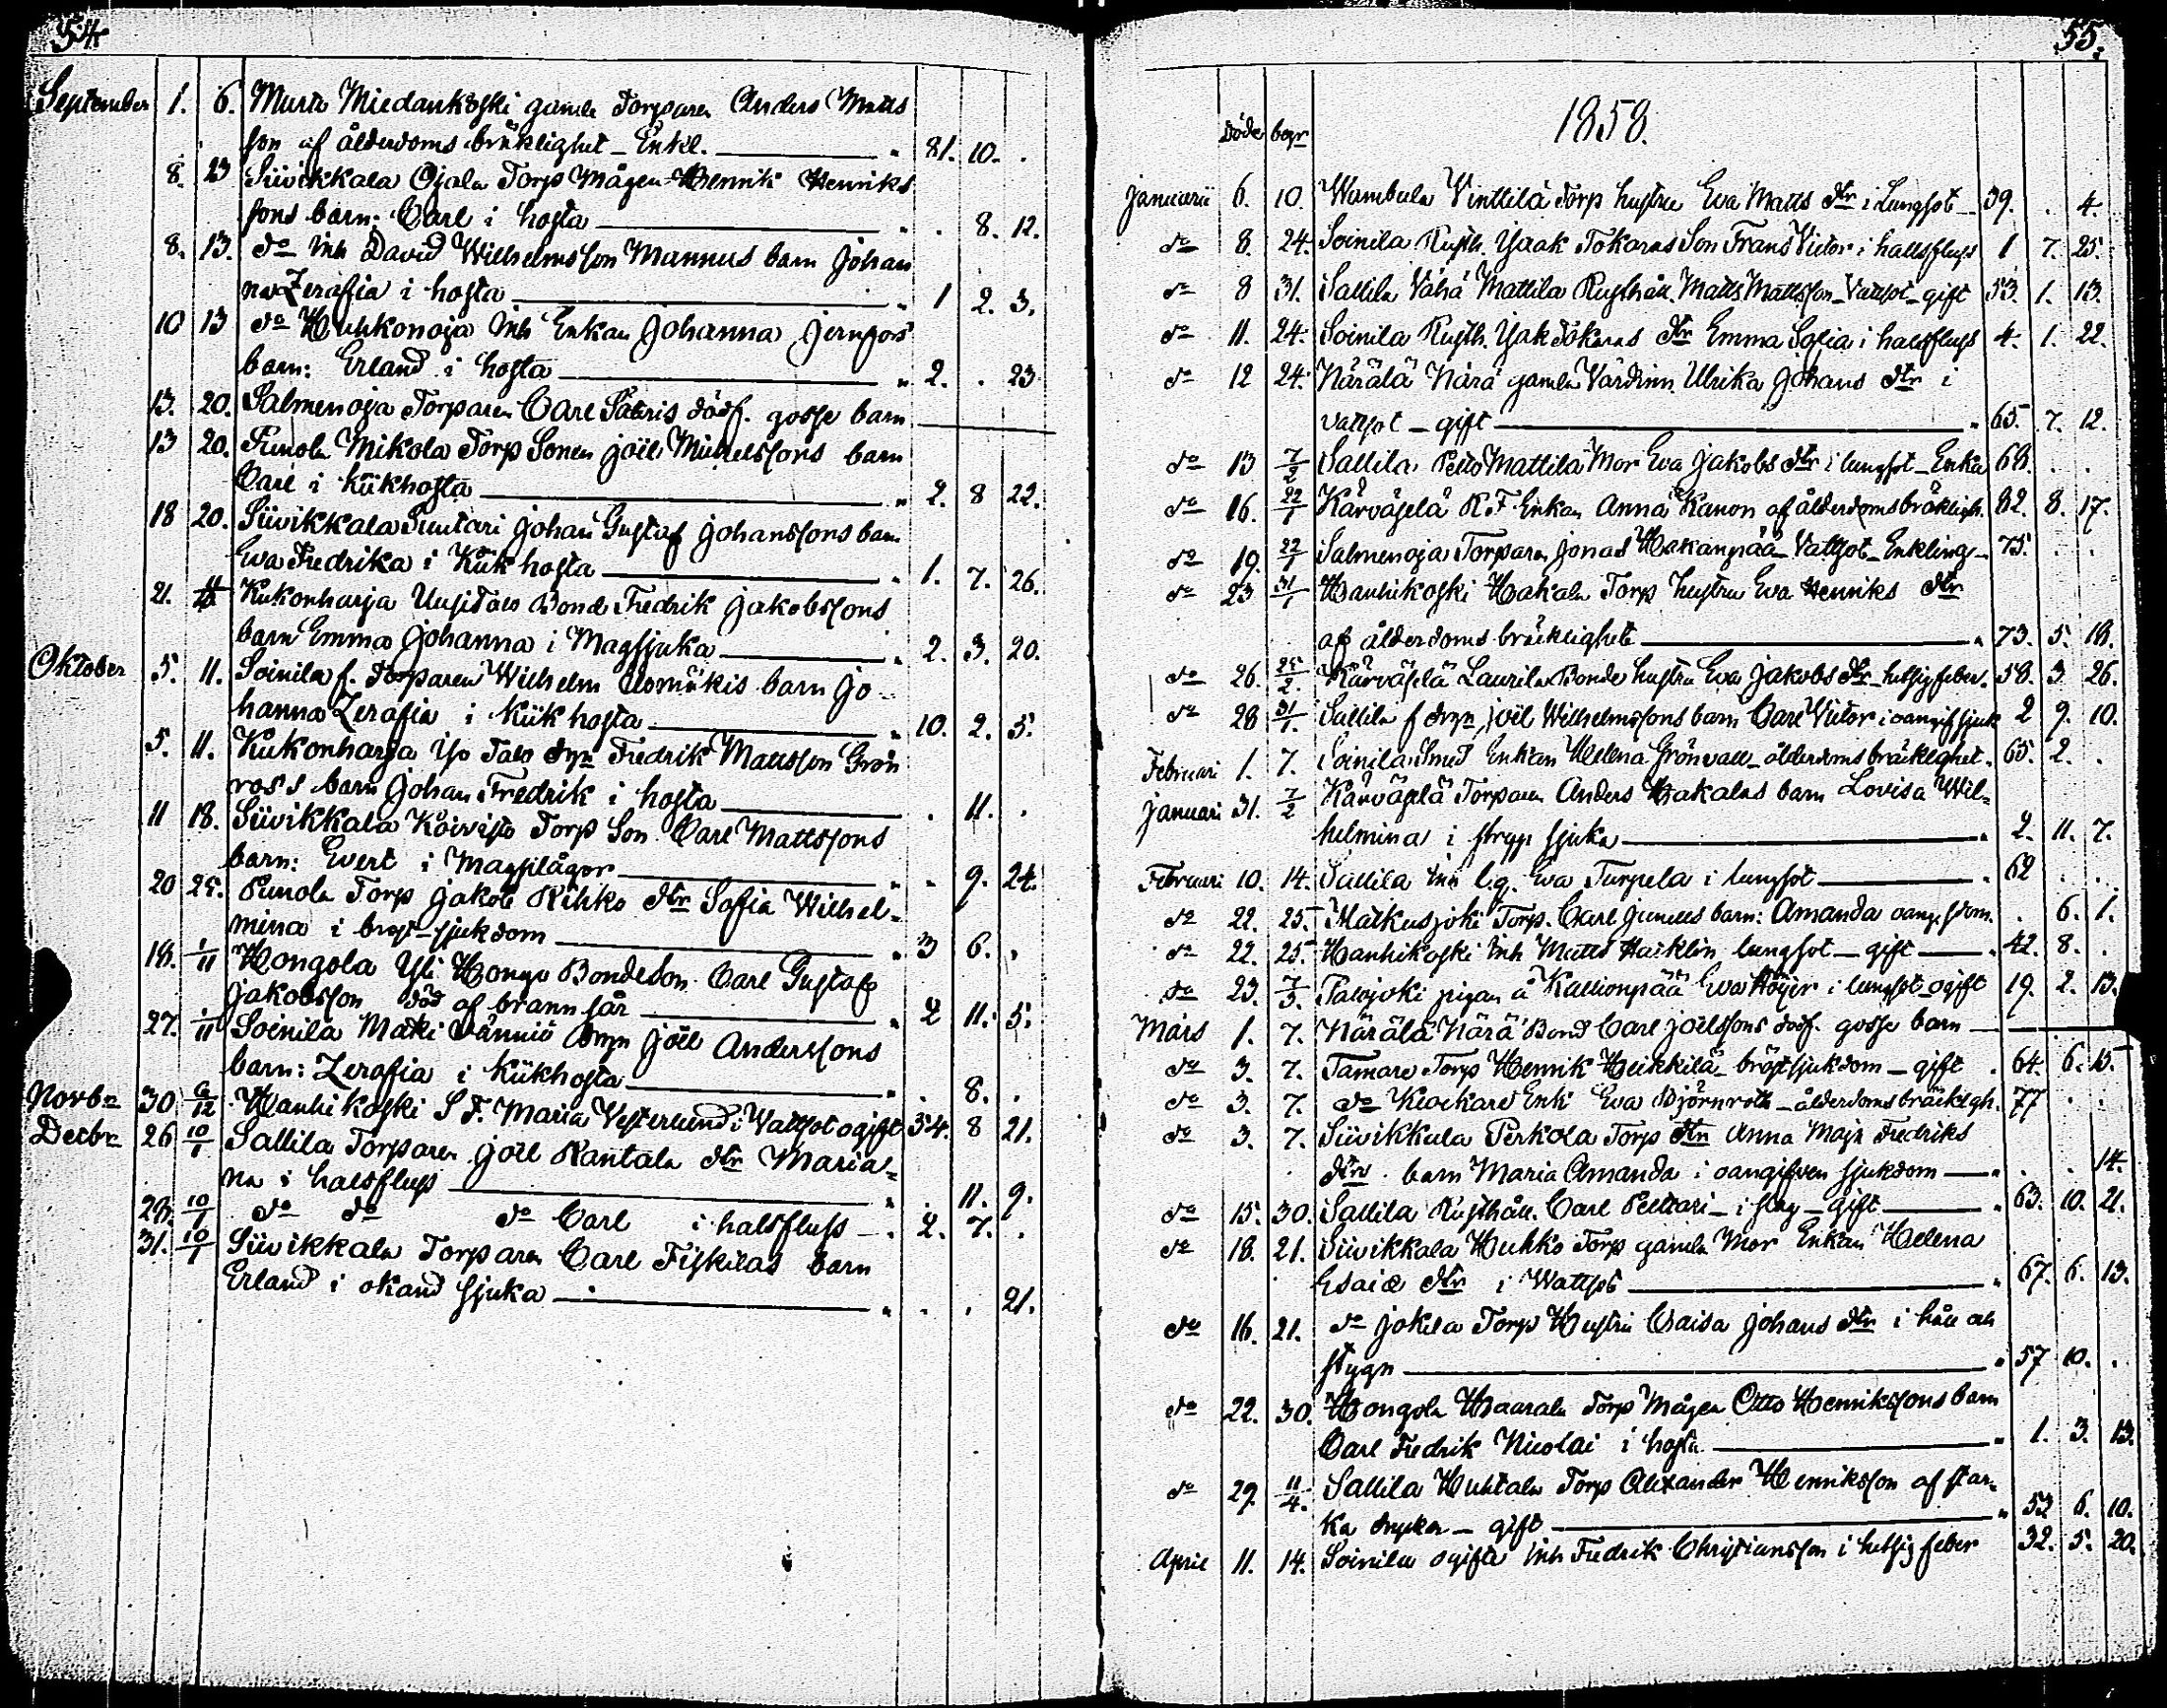 54
September 1. 6. Murto Miedankoski gamla Torparen Anders Matts
son af ålderdoms bräklighet - Enkl. " 81. 10. .
8. 23 Siivikkala Ojala Torp Mågen Henrik Henriks
sons barn: Carl i hosta " . 8. 12.
8. 13. do Inh David Wilhelmsson Mannus barn Johan
na Zerafia i hosta " 1 2. 3.
10 13 do Huhkonoja Inh Enkan Johanna Jernfors
barn: Erland i hosta " 2. . 23
13. 20. Salmenoja Torparen Carl Säteris dödf. gosse barn
13 20. Punola Mikola Torp Sonen Joël Michelssons barn
Carl i kikhosta " 2. 8 22.
18 20. Siivikkala Suutari Johan Gustaf Johanssons barn
Eva Fredrika i Kikhosta " 1. 7. 26.
21. Kukonharja Uusitalo Bonde Fredrik Jakobssons
barn Emma Johanna i Magsjuka " 2. 3. 20.
Oktober 5. 11. Soinila f. Torparen Wilhelm Uomäkis barn Jo-
hanna Zerafia i kikhosta " 10. 2. 5.
5. 11. Kukonharja Iso Talo drgn Fredrik Mattsson Grön
ros's barn Johan Fredrik i hosta . 11. .
11 18. Siivikkala Koivisto Torp Son Carl Mattssons
barn: Evert i Magplågor " - 9. 24.
20 25. Punola Torp Jakob Rihko dtr Sofia Wilhel-
mina i bröst-sjukdom " 3 6. .
18. 1/11 Hongola Yli Hongo Bondeson Carl Gustaf
Jakobsson död af brannsår " 2 11. 5.
27. 1/11 Soinila Mäki Vänniö drgn Joël Anderssons
barn: Zerafia i kikhosta " . 8. .
Novbr 30 6/12 Hanhikoski S F. Maria Vesterlund i Wattsot ogift 54. 8 21.
Decbr 26 10/1 Sallila Torparen Joël Rantala dtr Maria-
na i halsfluss " . 11. 9.
28. 10/1 do do do Carl i halsfluss - . 2. 7. .
31. 10/1 Siivikkala Torparen Carl Fiskilas barn
Erland i okänd sjuka " . . 21.
55.
1858.
döde begr
Januarii 6. 10. Wambula Vinttilä Torp hustru Eva Matts dtr i Lungsot - 39. . 4.
do 8. 24. Soinila Rusth. Isaak Tokaras Son Frans Victor i halsfluss 1 7. 25.
do 8 31. Sallila Vähä Mattila Rusthåll. Matts Mattsson - Vattsot - gift 53. 1. 13.
do 11. 24. Soinila Rusth. Isak Tokaras dtr Emma Sofia i halsfluss 4. 1. 22.
do 12 24. Närälä Närä gamla Värdinn Ulrika Johans dtr i
vattsot - gift " 65. 7. 12.
do 13 7/2 Sallila Pelto Mattila Mor Eva Jakobs dtr i lungsot - Enka 68. . .
do 16. 22/1 Kärväselä R.F. Enkan Anna Kanon af ålderdomsbräkligh. 82. 8. 17.
do 19. 22/1 Salmenoja Torparen Jonas Hakanpää - Vattsot - Enkling - 75. . .
do 23 31/1 Hanhikoski Hakala Torp hustru Eva Henriks dtr
af ålderdoms bräklighet " 73. 5. 18.
do 26. 25/2. Kärväselä Laurila Bonde hustru Eva Jakobs dtr - hetsig feber. 58. 3 26.
do 28 31/1. Sallila f drgn Joël Wilhelmssons barn Carl Victor i oangif sjuk 2 9. 10.
Februari 1. 7. Soinila Smed Enkan Helena Grönvall - ålderdoms bräklighet. 65. 2. .
Januari 31. 7/2 Kärväselä Torparen Anders Hakalas barn Lovisa Wil-
helmina i stryp sjuka " 2. 11. 7.
Februari 10. 14. Sallila Inh l.g. Eva Turpela i lungsot " 62 . .
do 22. 25. Matkusjoki Torp. Carl Junells barn: Amanda oang. sdom. . 6. 1.
do 22. 25. Hanhikoski Inh Matts Hacklin lungsot - gift " 42. 8. .
do 23. 7/3. Palojoki pigan å Kallionpää Eva Höijer i lungsot ogift 19. 2. 13.
Mars 1. 7. Närälä Närä Bond Carl Joëlssons dödf. gosse barn
do 3. 7. Tamare Torp Henrik Heikkilä - bröstsjukdom - gift . 64. 6. 15.
do 3. 7. do Klockare Enk Eva Björnroth - ålderdoms bräckligh. 77 . .
do 3. 7. Siivikkala Perkola Torp dtn Anna Maja Fredriks
dtrs barn Maria Amanda i oangifven sjukdom " . . 14.
do 15. 30. Sallila Rusthåll. Carl Pelttari - i slag - gift " 63. 10. 21.
do 18. 21. Siivikkala Huhko Torp gamla Mor Enkan Helena
Esaiæ dtr i Wattsot " 67. 6. 13.
do 16. 21. do Jokela Torp Hustru Caisa Johans dtr i håll och
stygn " 57 10. .
do 22. 30. Hongola Haarala Torp Mågen Otto Henrikssons barn
Carl Fredrik Nicolai i hosta " 1. 3. 13.
do 29. 11/4. Sallila Huhtala Torp Alexander Henriksson af star-
ka drycker - gift " 53 6. 10.
April 11. 14. Soinila ogifta Inh Fredrik Christiansson i hetsig feber 32. 5. 20.